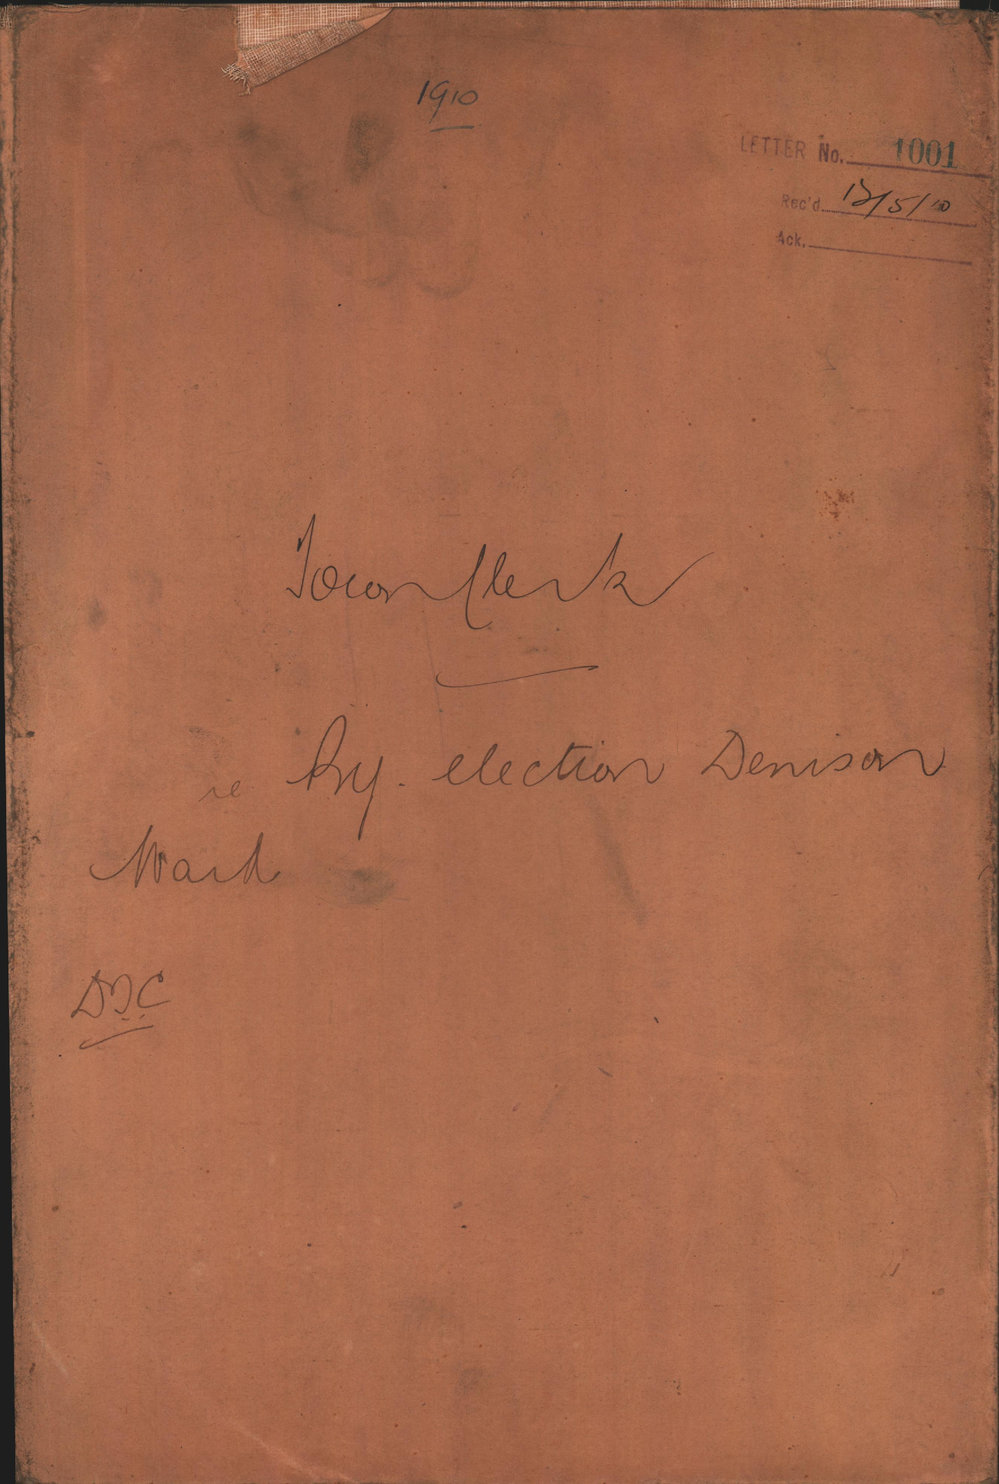 1910
LETTER No. 1001
Rec'd 12/5/10
Ack.
Town Clerk
re By. election Denison
Ward
D.T.C